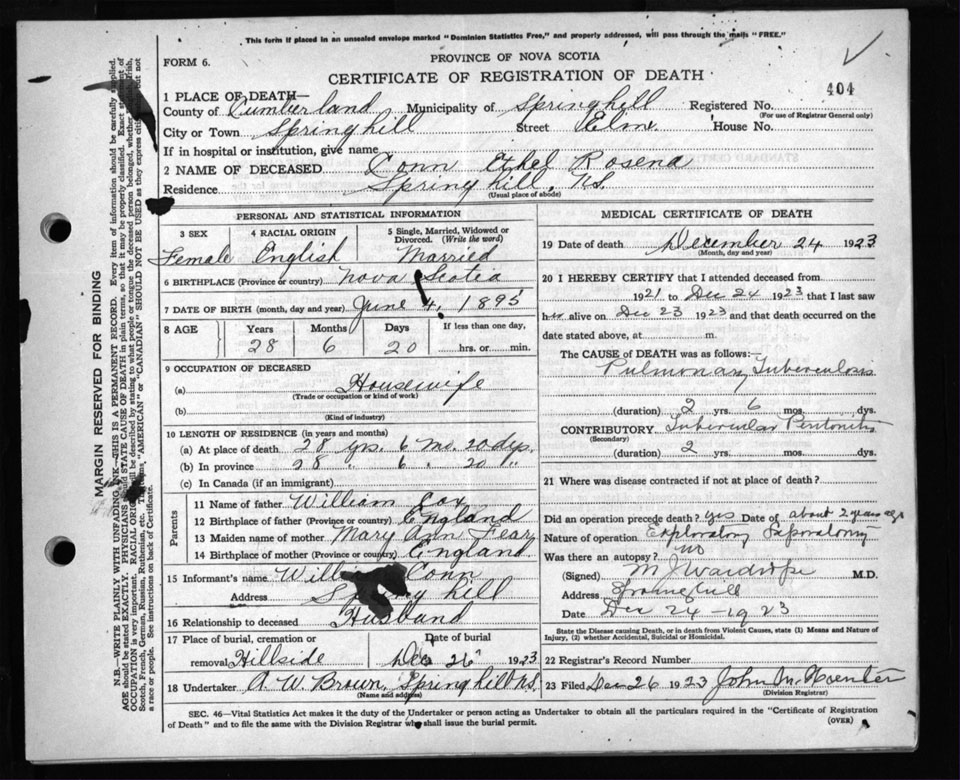 This form if placed in an unsealed envelope marked "Dominion Statistics Free," and properly addressed, will pass through the mails "FREE."
FORM 6.
PROVINCE OF NOVA SCOTIA
CERTIFICATE OF REGISTRATION OF DEATH
404
1 PLACE OF DEATH—
County of Cumberland Municipality of Springhill Registered No.
(For use of Registrar General only)
City or Town Springhill Street Elm House No.
If in hospital or institution, give name
2 NAME OF DECEASED Conn Ethel Rosena
Residence Spring hill, N.S.
(Usual place of abode)
MARGIN RESERVED FOR BINDING
N.B.—WRITE PLAINLY WITH UNFADING INK—THIS IS A PERMANENT RECORD. Every item of information should be carefully supplied.
AGE should be stated EXACTLY. PHYSICIANS should STATE CAUSE OF DEATH in plain terms, so that it may be properly classified. Exact statement of
OCCUPATION is very important. RACIAL ORIGIN should be described by stating to what people or tongue the deceased person belonged, whether English, Irish,
Scotch, French, German, Russian, Ruthenian, etc. The terms "AMERICAN" or "CANADIAN" SHOULD NOT BE USED as they express citizenship but not
a race or people. See instructions on back of Certificate.
PERSONAL AND STATISTICAL INFORMATION
3 SEX 4 RACIAL ORIGIN 5 Single, Married, Widowed or Divorced. (Write the word)
Female English Married
6 BIRTHPLACE (Province or country) Nova Scotia
7 DATE OF BIRTH (month, day and year) June 4, 1895
8 AGE Years Months Days If less than one day,
28 6 20 hrs. or min.
9 OCCUPATION OF DECEASED
(a) Housewife
(Trade or occupation or kind of work)
(b)
(Kind of industry)
10 LENGTH OF RESIDENCE (in years and months)
(a) At place of death 28 yrs. 6 mo. 20 dys.
(b) In province 28 " 6 " 20 "
(c) In Canada (if an immigrant)
Parents
11 Name of father William Cox
12 Birthplace of father (Province or country) England
13 Maiden name of mother Mary Ann Fear
14 Birthplace of mother (Province or country) England
15 Informant's name William Conn
Address Spring hill
16 Relationship to deceased Husband
17 Place of burial, cremation or Date of burial
removal Hillside Dec 26 1923
18 Undertaker A. W. Brown, Springhill N.S.
(Name and address)
MEDICAL CERTIFICATE OF DEATH
19 Date of death December 24 1923
(Month, day and year)
20 I HEREBY CERTIFY that I attended deceased from
1921 to Dec 24 1923 that I last saw
her alive on Dec 23 1923 and that death occurred on the
date stated above, at m.
The CAUSE OF DEATH was as follows:—
Pulmonary Tuberculosis
(duration) 2 yrs. 6 mos. dys.
CONTRIBUTORY Tubercular Peritonitis
(Secondary)
(duration) 2 yrs. mos. dys.
21 Where was disease contracted if not at place of death?
Did an operation precede death? yes Date of about 2 years ago
Nature of operation Exploratory Laparotomy
Was there an autopsy? no
(Signed) M J Wardrope M.D.
Address Springhill
Date Dec 24 - 1923
State the Disease causing Death, or in death from Violent Causes, state (1) Means and Nature of
Injury, (2) whether Accidental, Suicidal or Homicidal.
22 Registrar's Record Number
23 Filed Dec 26 1923 John
(Division Registrar)
SEC. 46—Vital Statistics Act makes it the duty of the Undertaker or person acting as Undertaker to obtain all the particulars required in the "Certificate of Registration
of Death" and to file the same with the Division Registrar who shall issue the burial permit.
(OVER)